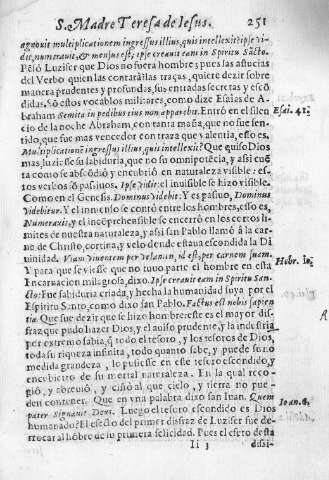 S. Madre Teresa de Iesus. 251
agnouit multiplicationem ingressus illius, quis intellexit? ipse vi-
dit, numerauit, & mensus est; ipse creauit eam in Spiritu Sãcto.
Pēsò Luzifer que Dios no fuera hombre; pues las astucias
del Verbo quien las contara? las traças, quiere dezir sobre
manera prudentes y profundas, sus entradas secretas y escõ
didas. Sõ estos vocablos militares, como dize Esaias de A-
braham Semita in pedibus eius non apparebit. Entrò en el silen
Esai. 41.
cio de la noche Abraham, con tanta maña, que no fue sen-
tido, que fue mas vencedor con traza que valentia, esso es,
Multiplicationē ingressus illius, quis intellexit? Que quiso Dios
mas, luzir se su sabiduria, que no su omnipotēcia, y assi cuē
ta como se abscõdiò y encubriò en naturaleza visible: es-
tos verbos sõ passiuos. Ipse vidit: el inuisible se hizo visible.
Como en el Genesis. Dominus videbit. Y es passiuo, Dominus
videbitur. Y el inmenso se contò entre los hombres, esso es,
Numerauit, y el incõprehensible se encerrò en los cortos li-
mites de nuestra naturaleza, y assi san Pablo llamò â la car-
ne de Christo, cortina, y velo donde estaua escondida la Di
uinidad. Viam viuentem per velamen, id est, per carnem suam.
Hebr. 10.
Y para que se viesse que no tuuo parte el hombre en esta
Incarnacion milagrosa, dixo. Ipse creauit eam in Spiritu San-
cto: Fue sabiduria criada, y hecha la humanidad suya por el
Espiritu Santo, como dixo san Pablo. Factus est nobis sapien
tia. Que fue dezir que se hizo hombre: este es el mayor dis-
fraz que pudo hazer Dios, y el auiso prudente, y la industria
per extremo sabia, q̃ todo el tesoro, y los tesoros de Dios,
toda su riqueza infinita, todo quanto sabe, y puede sin
medida grandeza, lo pusiesse en este tesoro escondido, y
encubierto de su mortal naturaleza. En la qual reco-
giò, y abreuiò, y ciñò al que cielo, y tierra no pue-
den contener. Que en vna palabra dixo san Iuan. Quem
Ioan. 6.
pater signauit Deus. Luego el tesoro escondido es Dios
humanado? El efecto del primer disfraz de Luzifer fue de-
rrocar al hõbre de su primera felicidad. Pues el efeto desta
Ii 3 disfi-
A